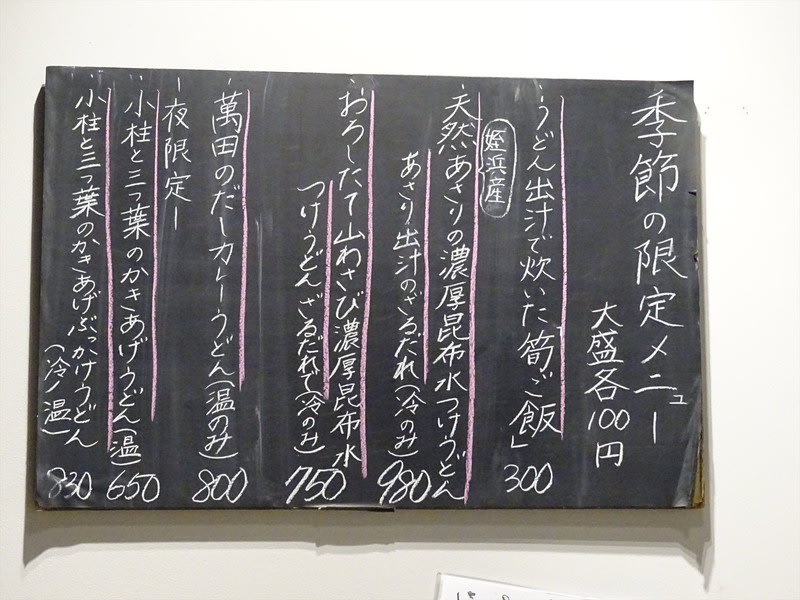 季節の限定メニュー
大盛各100円
・うどん出汁で炊いた筍ご飯」 300
姪浜産
・天然あさりの濃厚昆布水つけうどん
あさり出汁のざるだれ(冷のみ) 980
・おろしたて山わさび濃厚昆布水
つけうどんざるだれで(冷のみ) 750
・萬田のだしカレーうどん(温のみ) 800
-夜限定-
・小柱と三つ葉のかきあげうどん(温) 650
・小柱と三つ葉のかきあげぶっかけうどん
(冷/温) 830